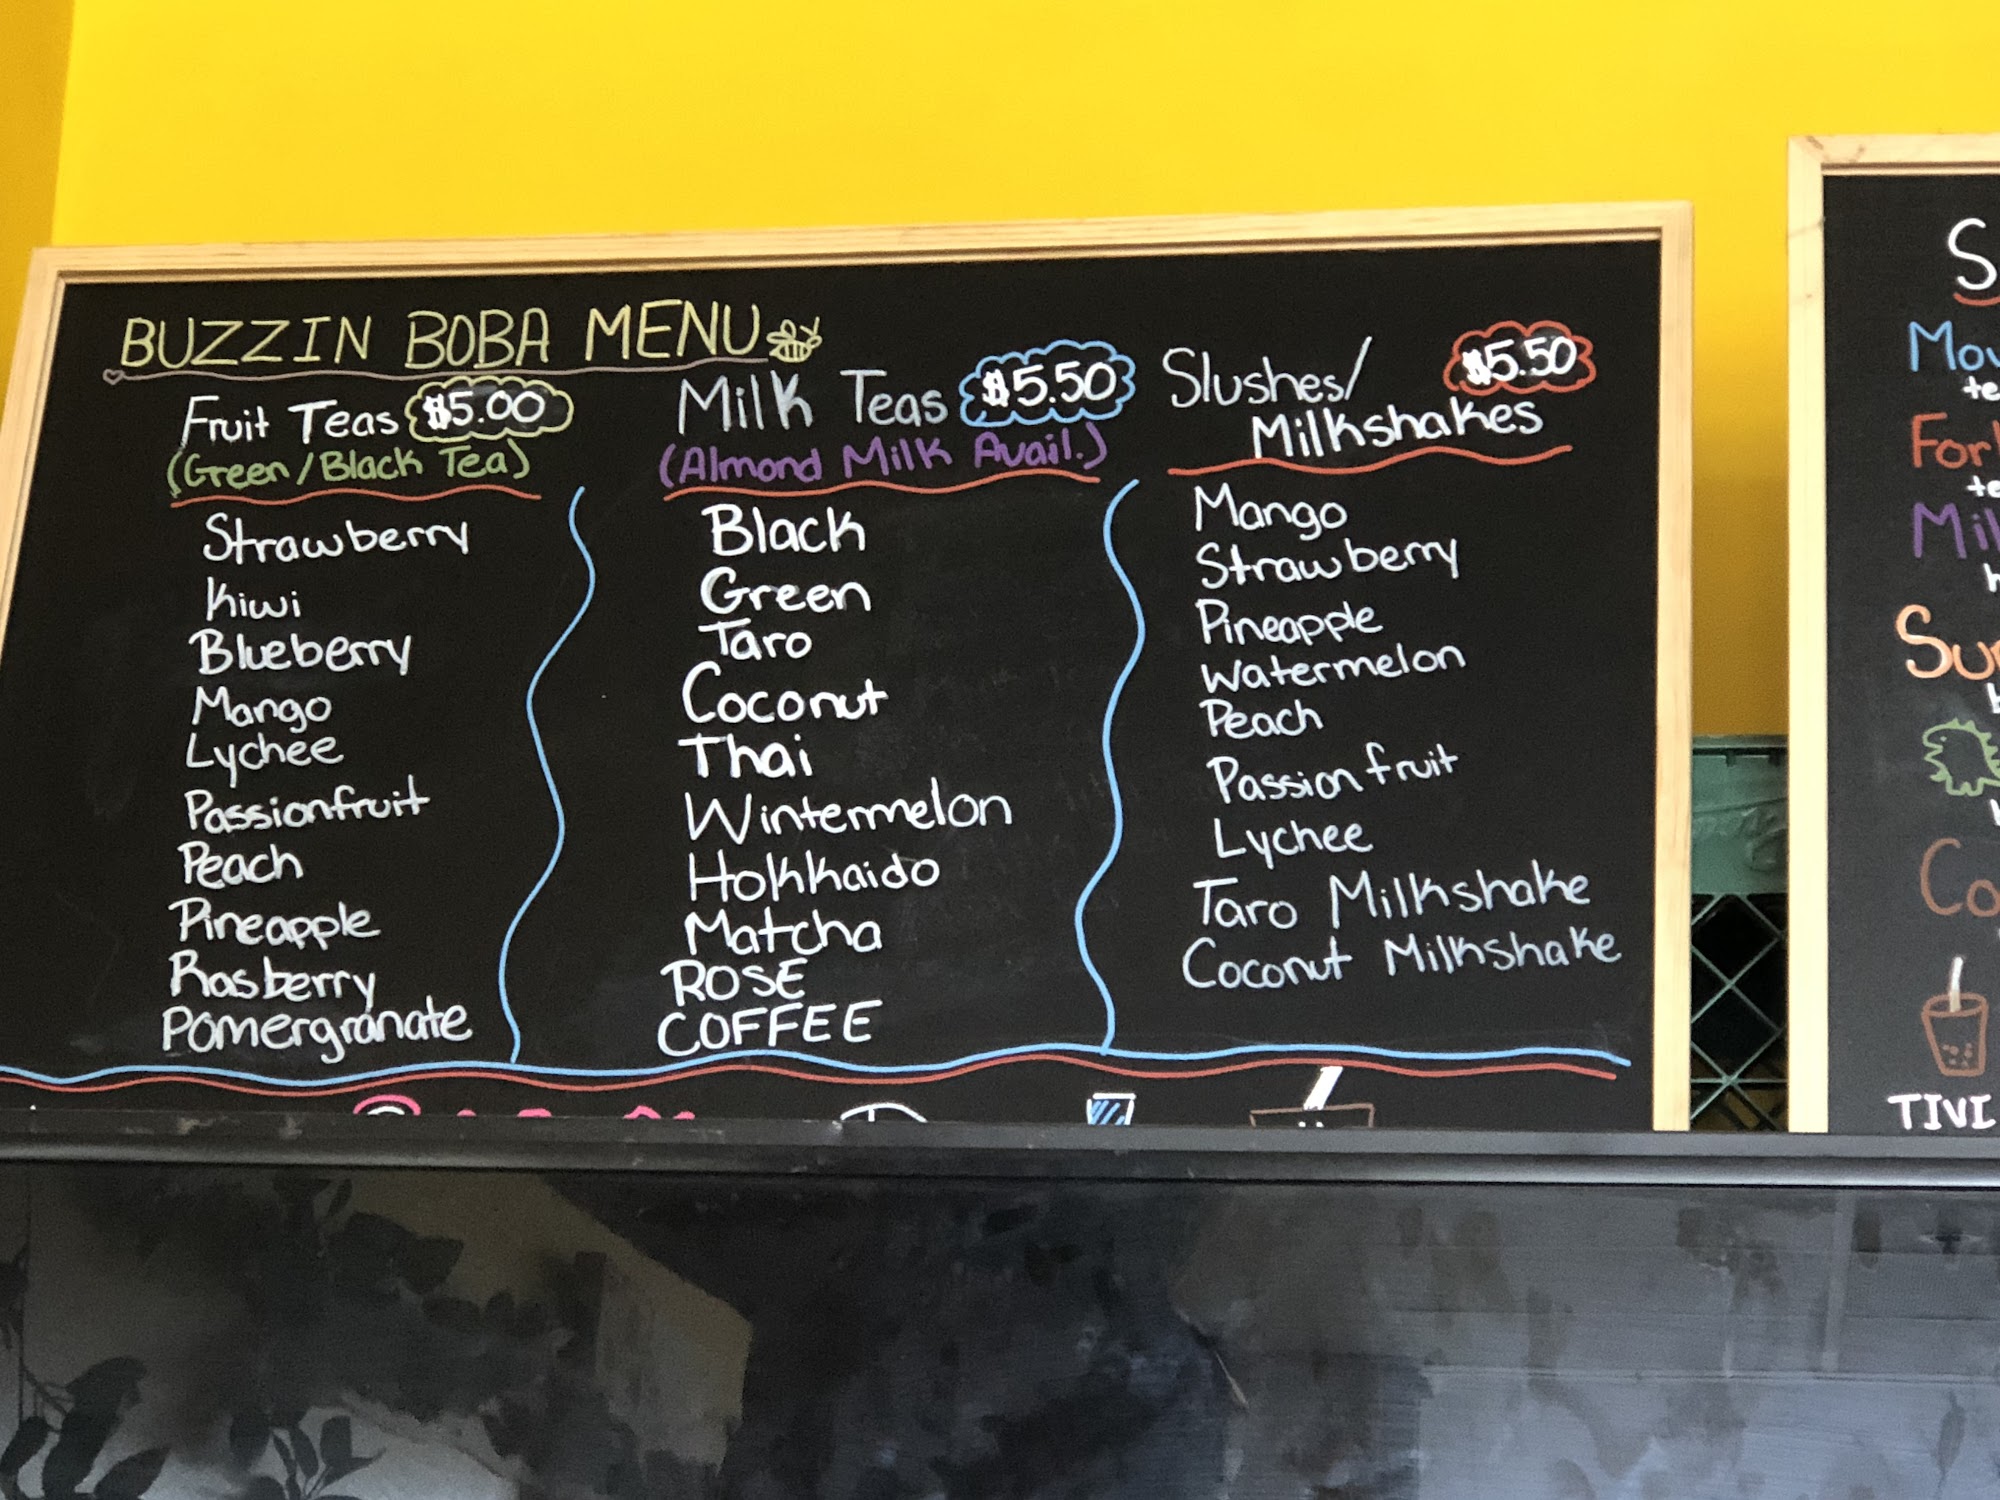 BUZZIN BOBA MENU
Fruit Teas $5.00
(Green/Black Tea)
Strawberry
Kiwi
Blueberry
Mango
Lychee
Passionfruit
Peach
Pineapple
Rasberry
Pomergranate
Milk Teas $5.50
(Almond Milk Avail.)
Black
Green
Taro
Coconut
Thai
Wintermelon
Hokkaido
Matcha
ROSE
COFFEE
Slushes/ $5.50
Milkshakes
Mango
Strawberry
Pineapple
Watermelon
Peach
Passion fruit
Lychee
Taro Milkshake
Coconut Milkshake